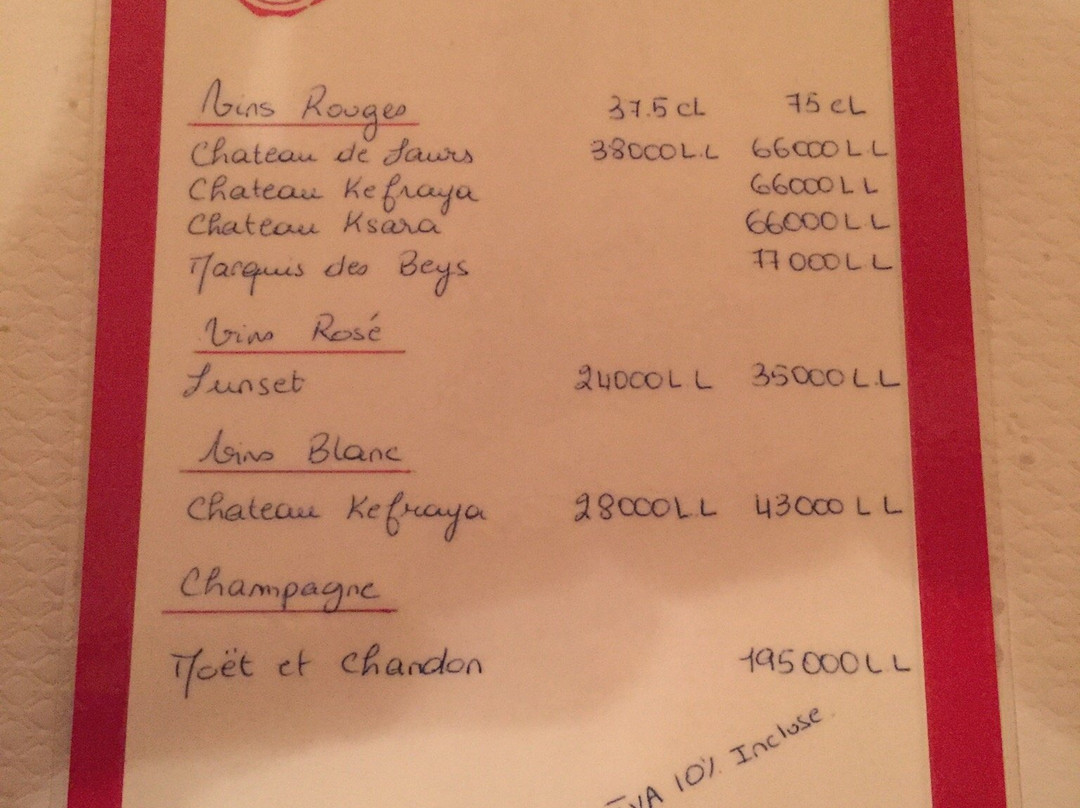 Vins Rouges 37.5 cL 75 cL
Chateau de Saurs 38000L.L 66000L L
Chateau Kefraya 66000L L
Chateau Ksara 66000L L
Marquis des Beys 77000L L
Vins Rosé
Sunset 24000L L 35000L.L
Vins Blanc
Chateau Kefraya 28000L.L 43000 L L
Champagne
Moët et Chandon 195000L L
TVA 10% Incluse